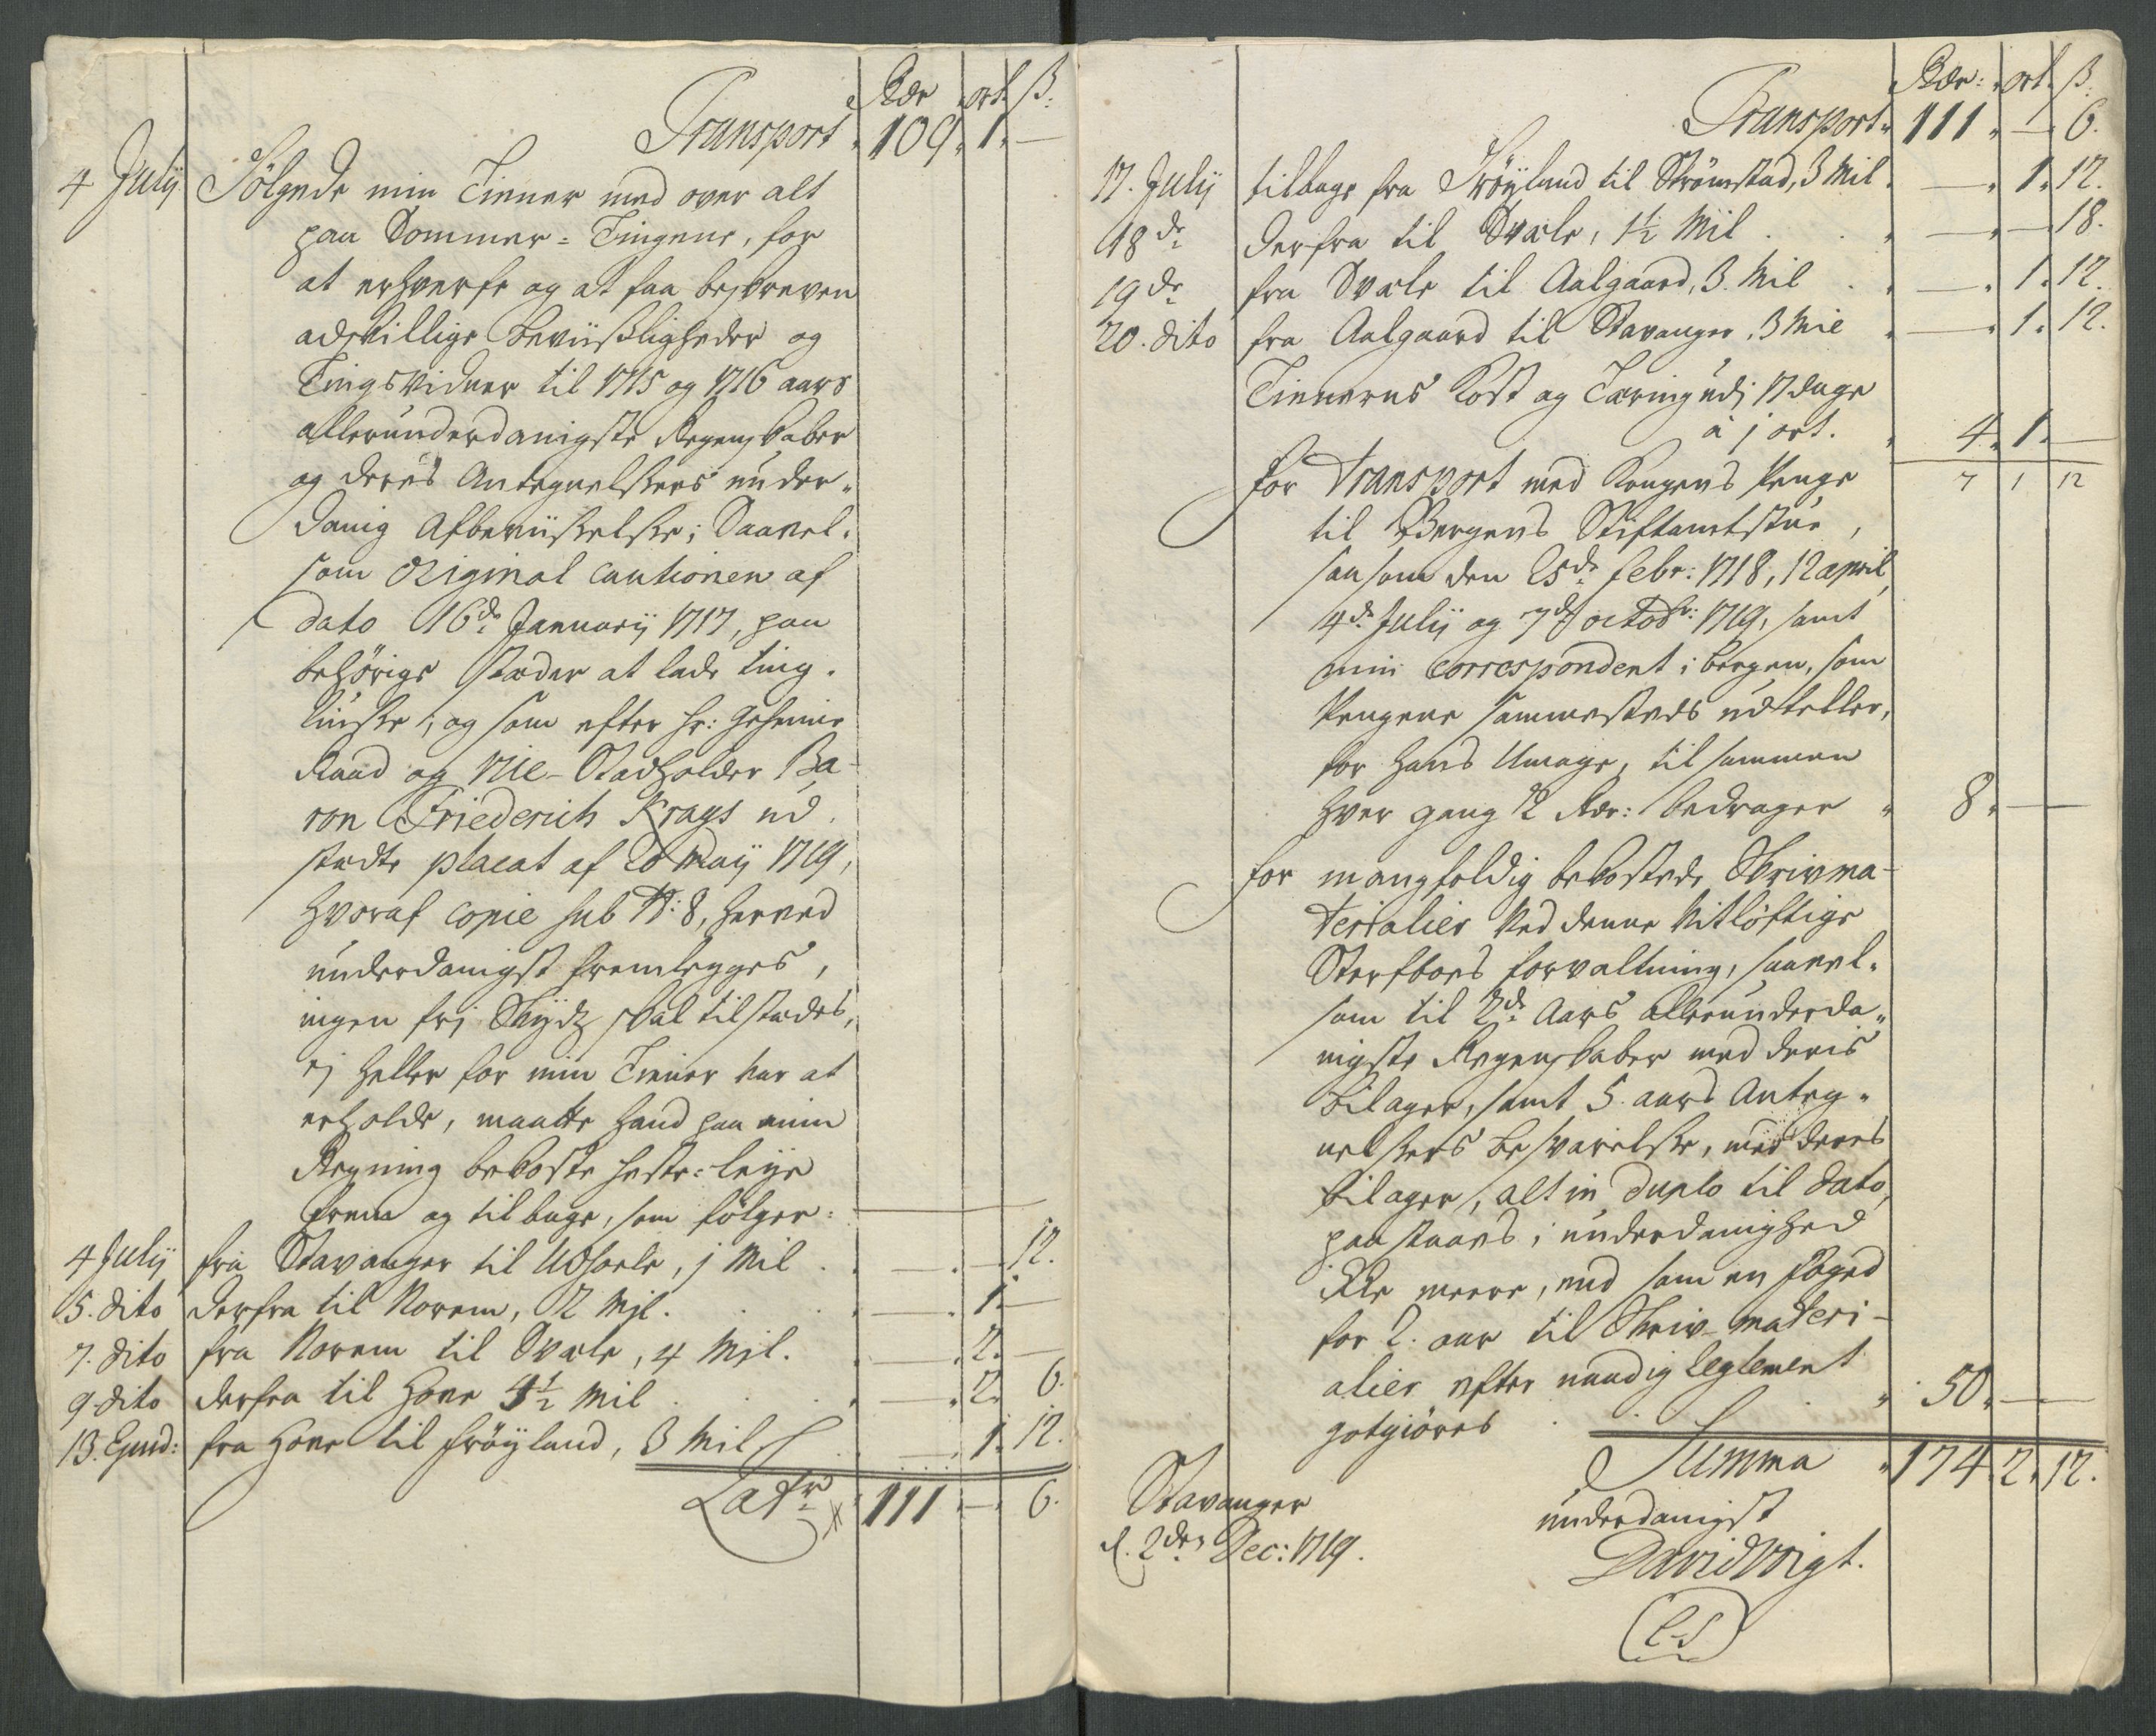 Rdr ort. ß:
Transport 109. 1. —
4 Julÿ Fölgede min Tiener med over alt
paa Sommer-Tingene, for
at erhverfe og at faa beskreven
adskillige beviisligheder og
Tingsvidner til 1715 og 1716 aars
allerunderdanigste Regenskaber
og deres Antegnelsers under-
danig Afbeviiselse; Saavel-
som Original Cautionen af
dato 16de Januarij 1717, paa
behörige stæder at lade ting-
liuse, og som efter hr: geheime
Raad og Vice-Stadholder Ba-
ron Friederich Krags ud-
stædte placat af 20 Maÿ 1719,
hvoraf Copie sub N: 8, herved
underdanigst fremlegges,
ingen frj Skydtz skal tilstædes,
ej heller for min Tiener var at
erholde, maatte hand paa min
Regning bekoste heste-leÿe
frem og tilbage, som fölger:
4 Julÿ fra Stavanger til , j Mil . — . — 12.
5. dito derfra til Norem, 2 Mjl. . — . 1. —
7. dito fra Norem til Svale, 4 Mjl. . — . 2. —
9. dito derfra til Hove 4½ Mil . — . 2. 6.
13. Ejusd: fra Hove til Fröÿland, 3 Mil . — . 1. 12.
Latr 111 . — . 6.
Rdr: ort. ß.
Transport 111. — . 6.
17. Julÿ tilbage fra Fröÿland til Strömstad, 3 Mil . — . 1. 12.
18de derfra til Svale, 1½ Mil . — . — 18.
19de fra Svale til Aalgaard, 3. Mil . — . 1. 12.
20. dito fra Aalgaard til Stavanger, 3 Mil . — . 1. 12.
Tienerens Kost og Tæring udj 17 dage
à j ort. 4. 1. —
for Transport med Kongens Penge 7 1 12
til Bergens Stiftamtstue,
saasom den 25de Febr: 1718, 12 april,
4de Julÿ og 7de octobr: 1719, samt
min Correspondent i bergen, som
Pengene sammesteds udteller,
for hans Umage, til sammen
hver gang 2 Rdr: bedrager 8. —
for mangfoldig bekostede Skrivma-
terialier ved denne vitlöftige
Sterfboes forvaltning, saavel-
som til 2de Aars allerunderda-
nigste Regenskaber med deris
bilager, samt 5 aars Anteg-
nelsers besvarelse, med deres
bilager, alt in Duplo til dato,
paastaaes, i underdanighed
ikke meere, end som en foged
for 2. aar til Skriv-materi-
alier efter naadig Reglement
godgiöres . 50. —
Summa 174. 2. 12.
Stavanger
d. 2den Dec: 1719.
underdanigst
David Voigt.
(LS)